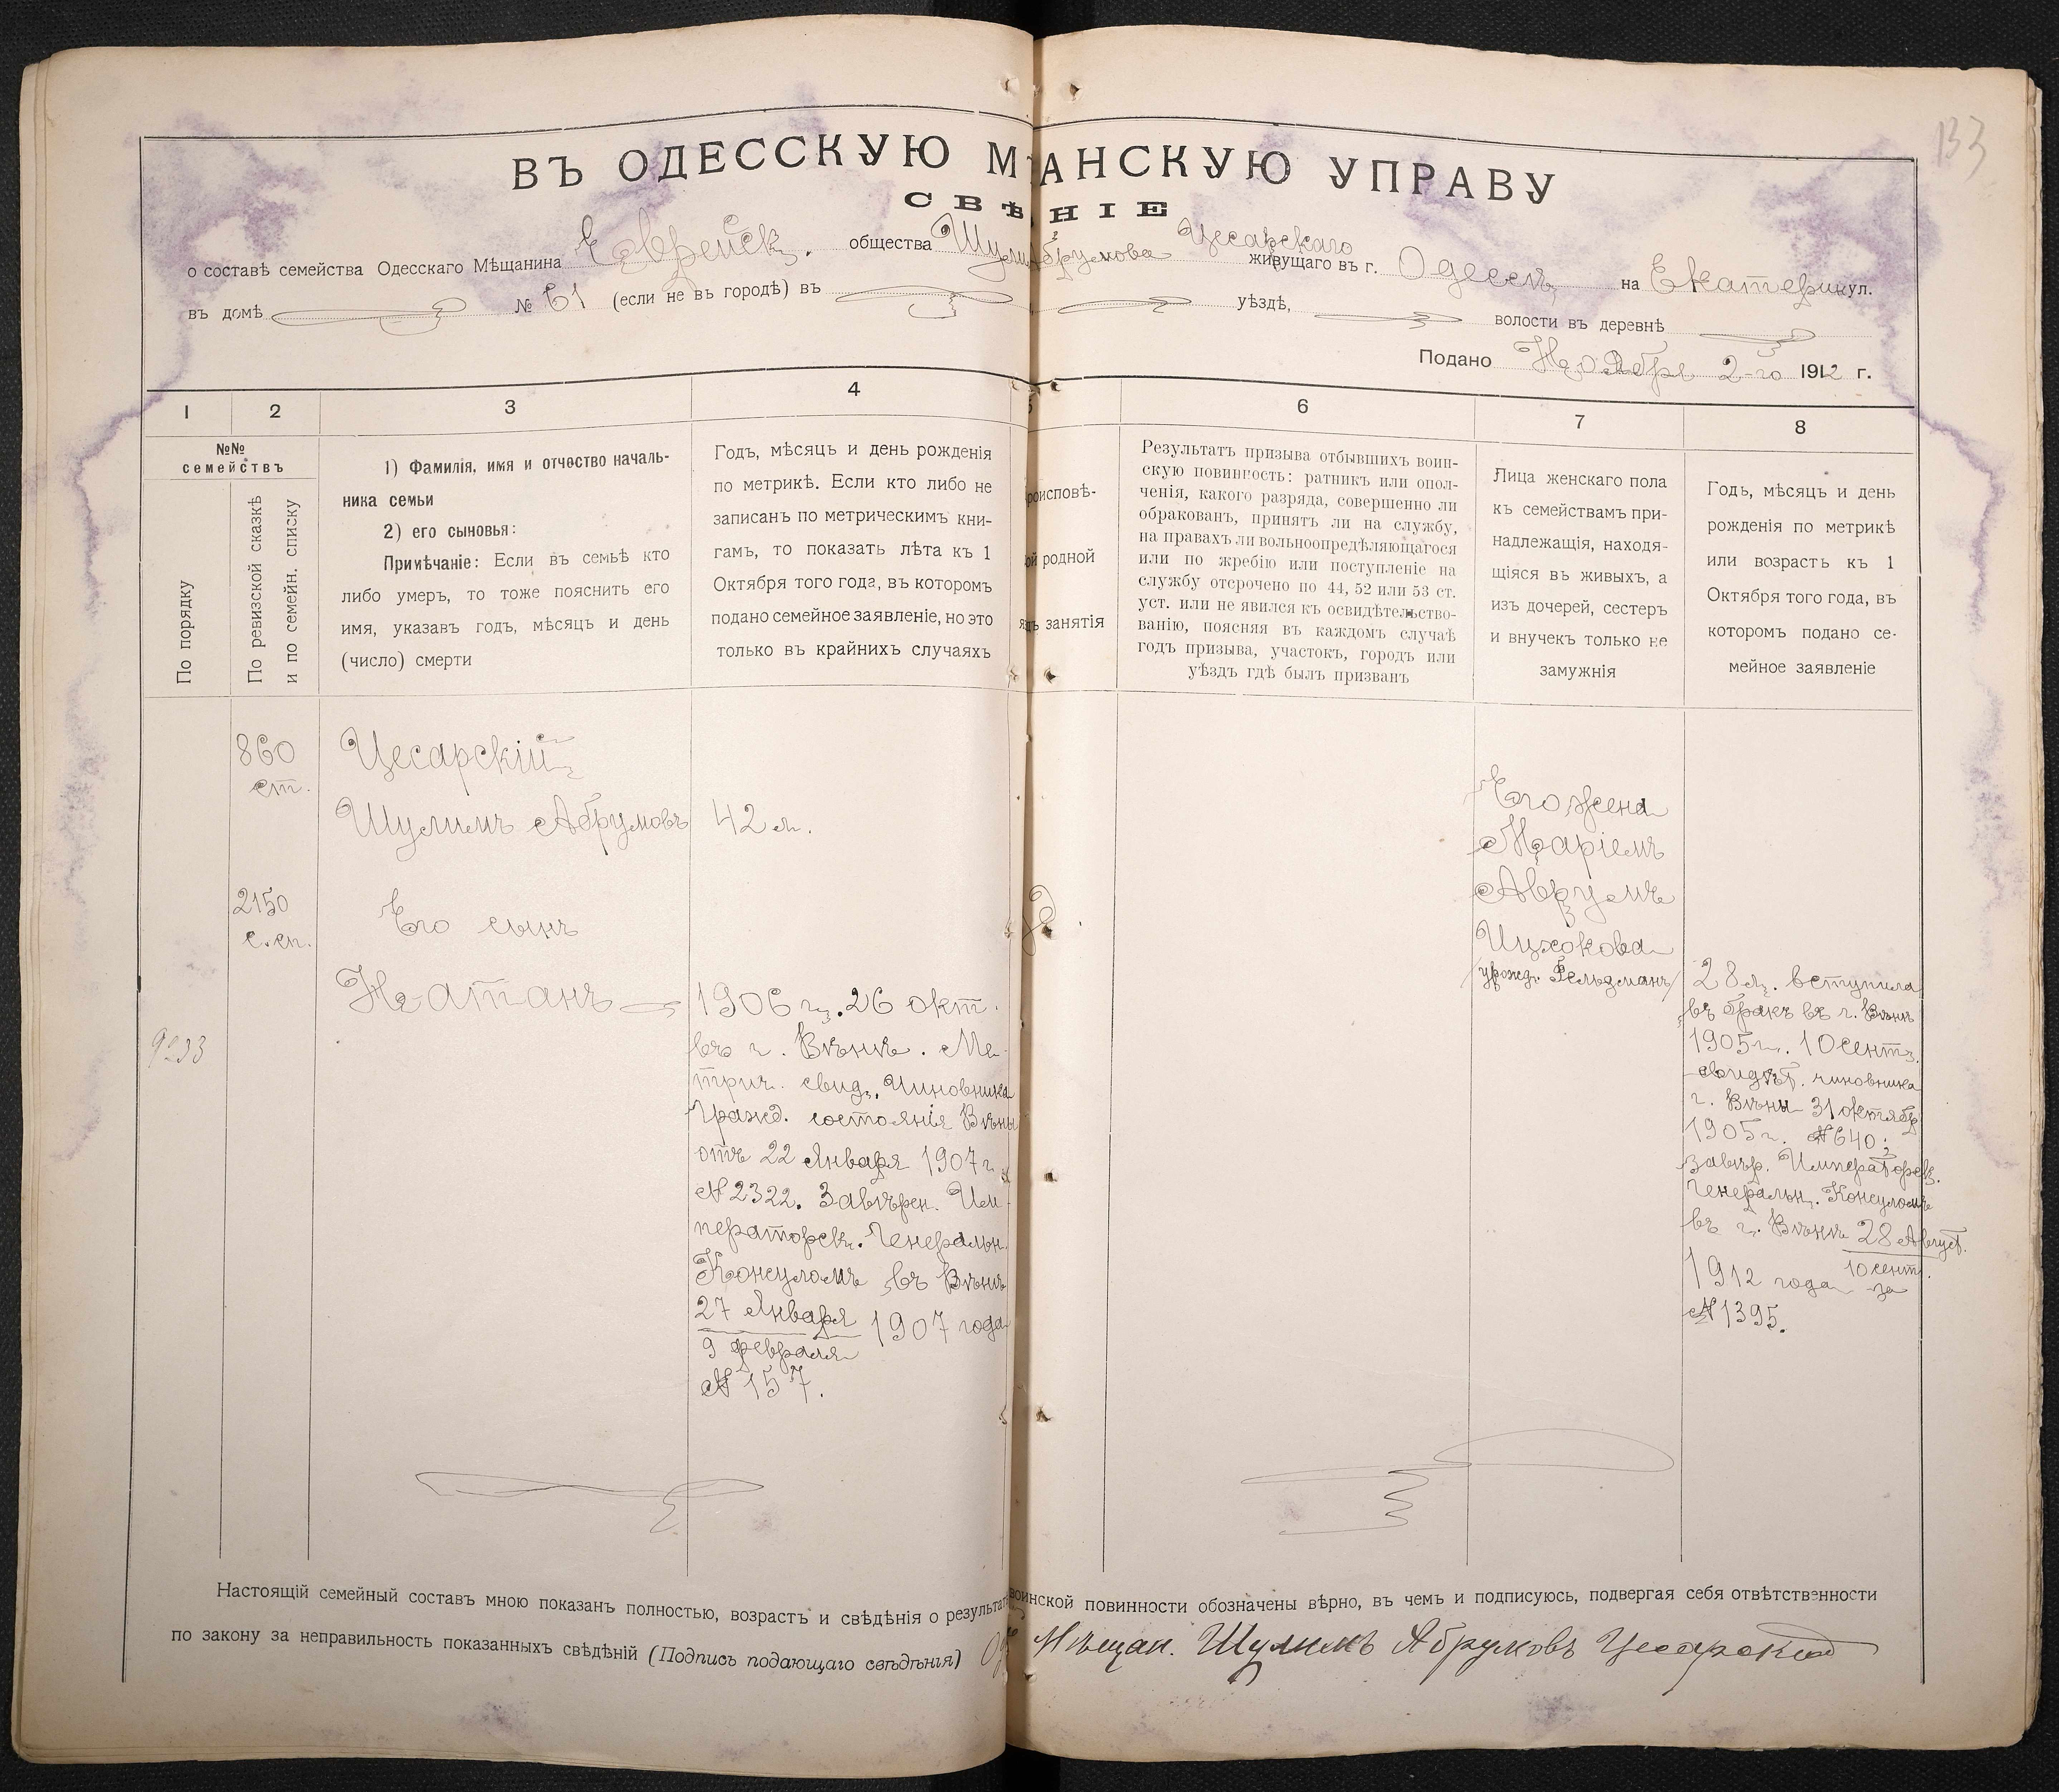 133
ВЪ ОДЕССКУЮ М АНСКУЮ УПРАВУ
СВѢ НІЕ
о составѣ семейства Одесскаго Мѣщанина Еврейск. общества Шулим Абрумова Цесарскаго живущаго въ г. Одессѣ на Екатерин ул.
въ домѣ № 61 (если не въ городѣ) въ уѣздѣ, волости въ деревнѣ
Подано Ноября 2-го 1912 г.
1 2 3 4 5 6 7 8
№№ семействъ
По порядку
По ревизской сказкѣ
и по семейн. списку
1) Фамилія, имя и отчество началь-
ника семьи
2) его сыновья:
Примѣчаніе: Если въ семьѣ кто
либо умеръ, то тоже пояснить его
имя, указавъ годъ, мѣсяцъ и день
(число) смерти
Годъ, мѣсяцъ и день рожденія
по метрикѣ. Если кто либо не
записанъ по метрическимъ кни-
гамъ, то показать лѣта къ 1
Октября того года, въ которомъ
подано семейное заявленіе, но это
только въ крайнихъ случаяхъ
роисповѣ-
ой родной
занятія
Результатъ призыва отбывшихъ воин-
скую повинность: ратникъ или опол-
ченія, какого разряда, совершенно ли
обракованъ, принятъ ли на службу,
на правахъ ли вольноопредѣляющагося
или по жребію или поступленіе на
службу отсрочено по 44, 52 или 53 ст.
уст. или не явился къ освидѣтельство-
ванію, поясняя въ каждомъ случаѣ
годъ призыва, участокъ, городъ или
уѣздъ гдѣ былъ призванъ
Лица женскаго пола
къ семействамъ при-
надлежащія, находя-
щіяся въ живыхъ, а
изъ дочерей, сестеръ
и внучекъ только не
замужнія
Годъ, мѣсяцъ и день
рожденія по метрикѣ
или возрастъ къ 1
Октября того года, въ
которомъ подано се-
мейное заявленіе
9233
860
ст.
2150
с. сп.
Цесарскій
Шулимъ Абрумовъ
Его сынъ
Натанъ
42 л.
1906 г. 26 окт.
въ г. Вѣнѣ. Ме-
трич. свид. Чиновника
Гражд. состоянія Вѣны
отъ 22 Января 1907 г.
№ 2322. Завѣрен. Им-
ператорск. Генеральн.
Консуломъ въ Вѣнѣ
27 Января
9 февраля 1907 года
№ 157.
Его жена
Маріемъ
Аврумъ
Ицхокова
/урожд. Фельдманъ/
28 л. вступила
въ бракъ въ г. Вѣнѣ
1905 г. 10 сент.
свидѣт. чиновника
г. Вѣны 31 октябр
1905 г. № 640:
завѣр. Императорск.
Генеральн. Консуломъ
въ г. Вѣнѣ 28 Август.
10 сент.
1912 года за
№ 1395.
Настоящій семейный составъ мною показанъ полностью, возрастъ и свѣдѣнія о результат воинской повинности обозначены вѣрно, въ чемъ и подписуюсь, подвергая себя отвѣтственности
по закону за неправильность показанныхъ свѣдѣній (Подпись подающаго свѣдѣнія) Мѣщан. Шулимъ Абрумовъ Цесарскій